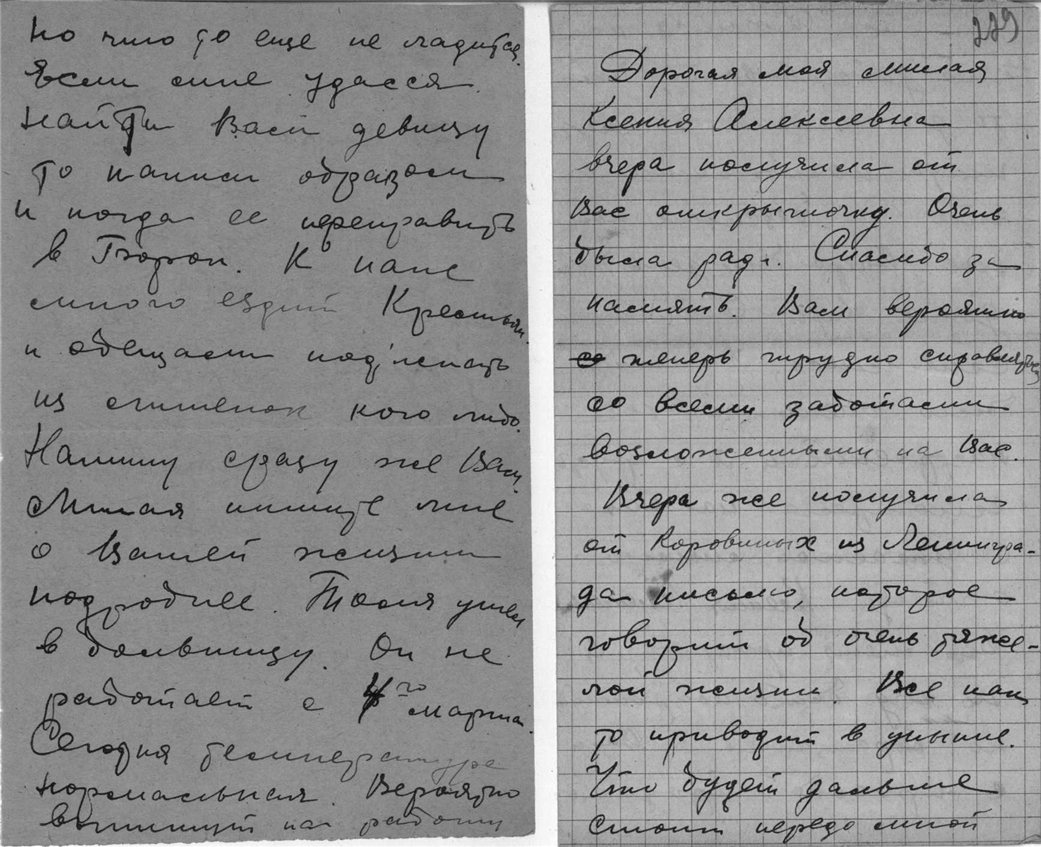 Но что то еще не ладится.
Если мне удасся
найти Вам девицу
то каким образом
и когда ее переправить
в К папе
много ездит Крестьян.
и обещают под'искать
из кого либо.
Напишу сразу же Вам.
Милая пишите мне
о Вашей жизни
подробнее. Толя ушел
в больницу. Он не
работает с 4го марта.
Сегодня температура
нормальная. Вероятно
выпишут на работу
229
Дорогая моя милая
Ксения Алексеевна
вчера получила от
Вас открыточку. Очень
была рада. Спасибо за
память. Вам вероятно
теперь трудно справляться
со всеми заботами
возложенными на Вас.
Вчера же получила
от Коровиных из Ленингра-
да письмо, которое
говорит об очень тяже-
лой жизни. Все как
то приводит в уныние.
Что будет дальше
стоит передо мной